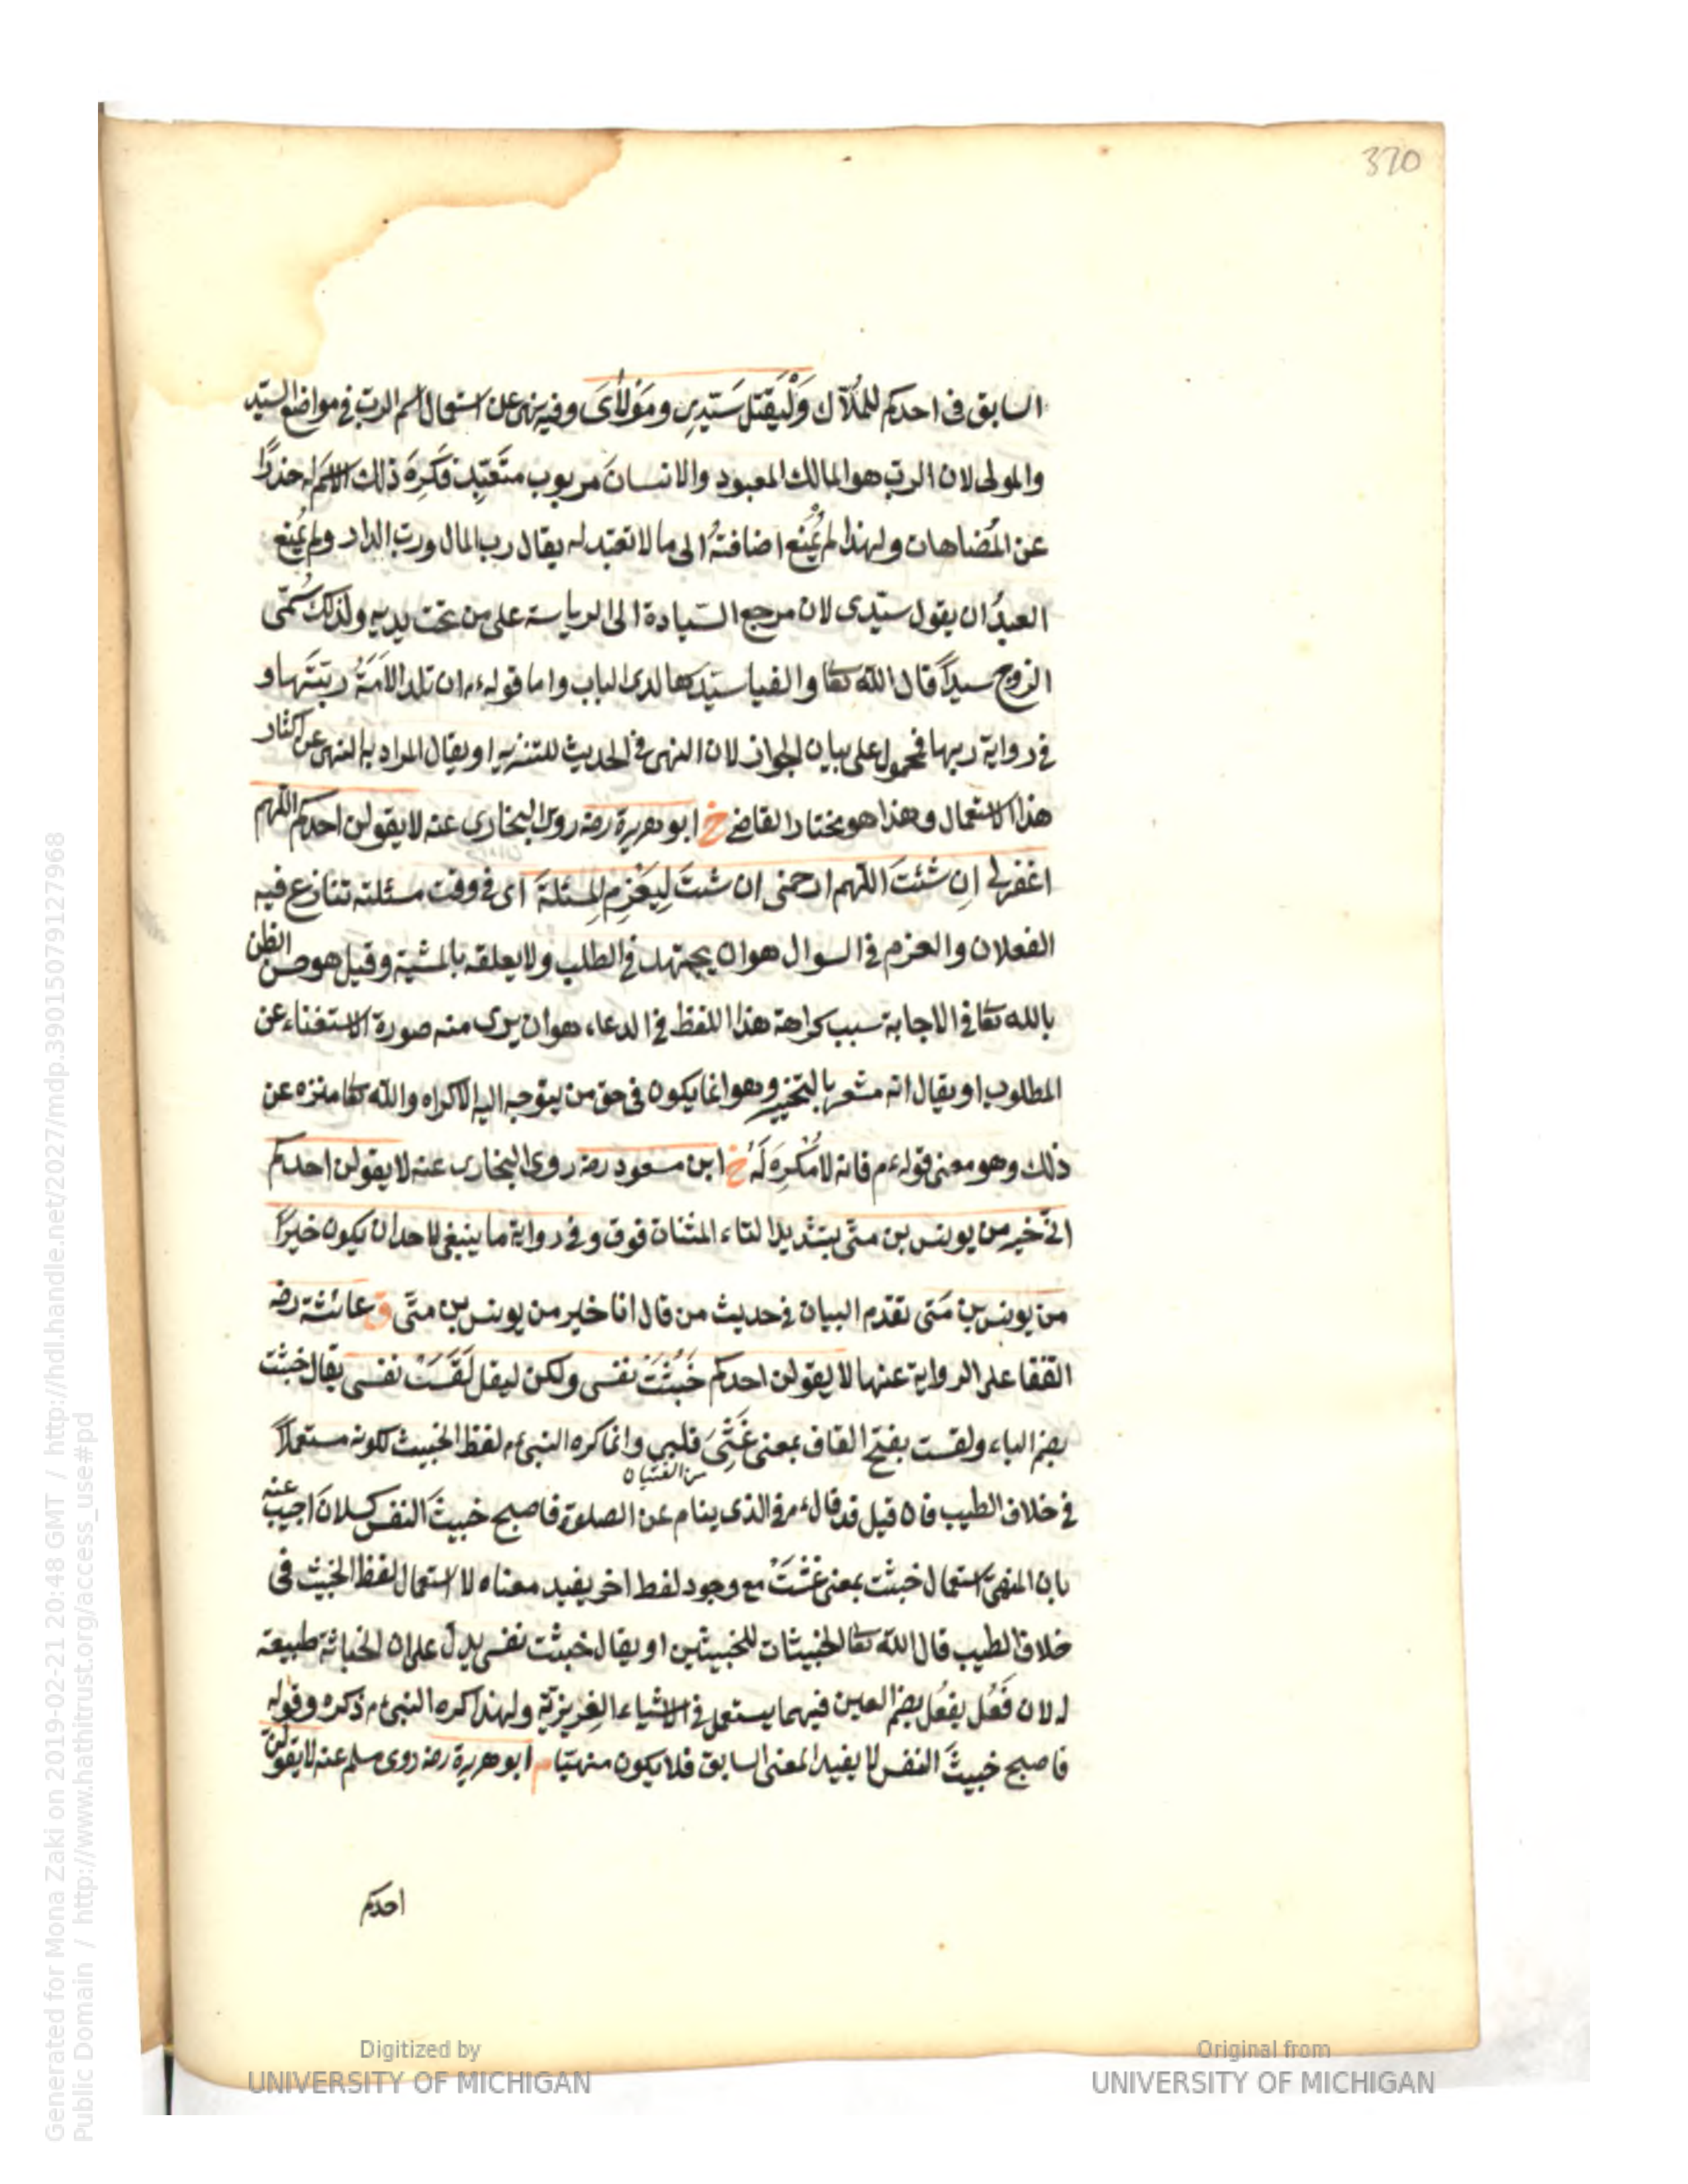 370
السابق فى احدكم للملآك وَلْيَقُل سَيّدِى ومَوْلَاىَ وفيه نهى عن استعمال اسم الرب فى مواضع السيّد
والمولى لان الرب هو المالك المعبود والانسان مربوب متعبّد فكَرِهَ ذلك الاسم له حذرًا
عن المُضاهات ولهذا لم يُمنع اضافتهُ الى ما لا تعبّد له يقال رب المال ورب الدار ولم يُمنع
العبدُ ان يقول سيّدى لان مرجع السيادة الى الرياسة على من تحت يديه ولذلك سُمّى
الزوج سيدًا قال الله تعا والفيا سيّدها لدى الباب واما قوله ءم ان تلد الأمَةُ ربّتَها و
فى رواية ربها فمحمول على بيان الجواز لان النهى فى الحديث للتنزيه او يقال المراد به النهى عن اكثار
هذا الاستعمال وهذا هو مختار القاضى خ ابو هريرة رضه روى البخارى عنه لا يقولن احدكم اللهم
اغفر لى اِن شئتَ اللهم ارحمنى ان شئتَ لِيَعْزِم المسئلةَ اى فى وقت مسئلته تنازع فيه
الفعلان والعزم فى السوال هو ان يجتهد فى الطلب ولا يعلقه بالمشية وقيل هو حسن الظن
بالله تعا فى الاجابة سبب كراهة هذا اللفظ فى الدعاء هو ان يرى منه صورة الاستغناء عن
المطلوب او يقال انه مشعر بالتخيير وهو انما يكون فى حق من يتوجه اليه الاكراه والله تعا منزه عن
ذلك وهو معنى قوله ءم فانه لا مُكْرِهَ لَهُ خ ابن مسعود رضه روى البخارى عنه لا يقولن احدكم
انّى خير من يونس بن متّى بتشديد التاء المثناة فوق وفى رواية ما ينبغى لاحد ان يكون خيرًا
من يونس بن مَتى تقدم البيان فى حديث من قال انا خير من يونس بن متّى ق عائشة رضه
اتفقا على الرواية عنها لا يقولن احدكم خَبُثَتْ نفسى ولكن ليقل لَقَسَتْ نفسى يقال خبثت
بضم الباء ولقست بفتح القاف بمعنى غَثَى قلبى وانما كره النبى ءم لفظ الخبيث لكونه مستعملًا
من الغثيان
فى خلاف الطيب فان قيل قد قال ءم فى الذى ينام عن الصلوة فاصبح خبيثَ النفس كسلانَ اجيب عنه
بان المنهىّ استعمال خبثت بمعنى غثَتْ مع وجود لفظ اخر يفيد معناه لا استعمال لفظ الخبيث فى
خلاف الطيب قال الله تعا الخبيثات للخبيثين او يقال خبثت نفسى يدلّ على ان الخباثة طبيعة
له لان فَعُل يفعُل بضم العين فيهما يستعمل فى الاشياء الغريزيّة ولهذا كره النبى ءم ذكره وقوله
فاصبح خبيثَ النفس لا يفيد المعنى السابق فلا يكون منهيّا م ابو هريرة رضه روى مسلم عنه لا يقولن
احدكم
Digitized by
UNIVERSITY OF MICHIGAN
Original from
UNIVERSITY OF MICHIGAN
Generated for Mona Zaki on 2019-02-21 20:48 GMT / http://hdl.handle.net/2027/mdp.39015079127968
Public Domain / http://www.hathitrust.org/access_use#pd